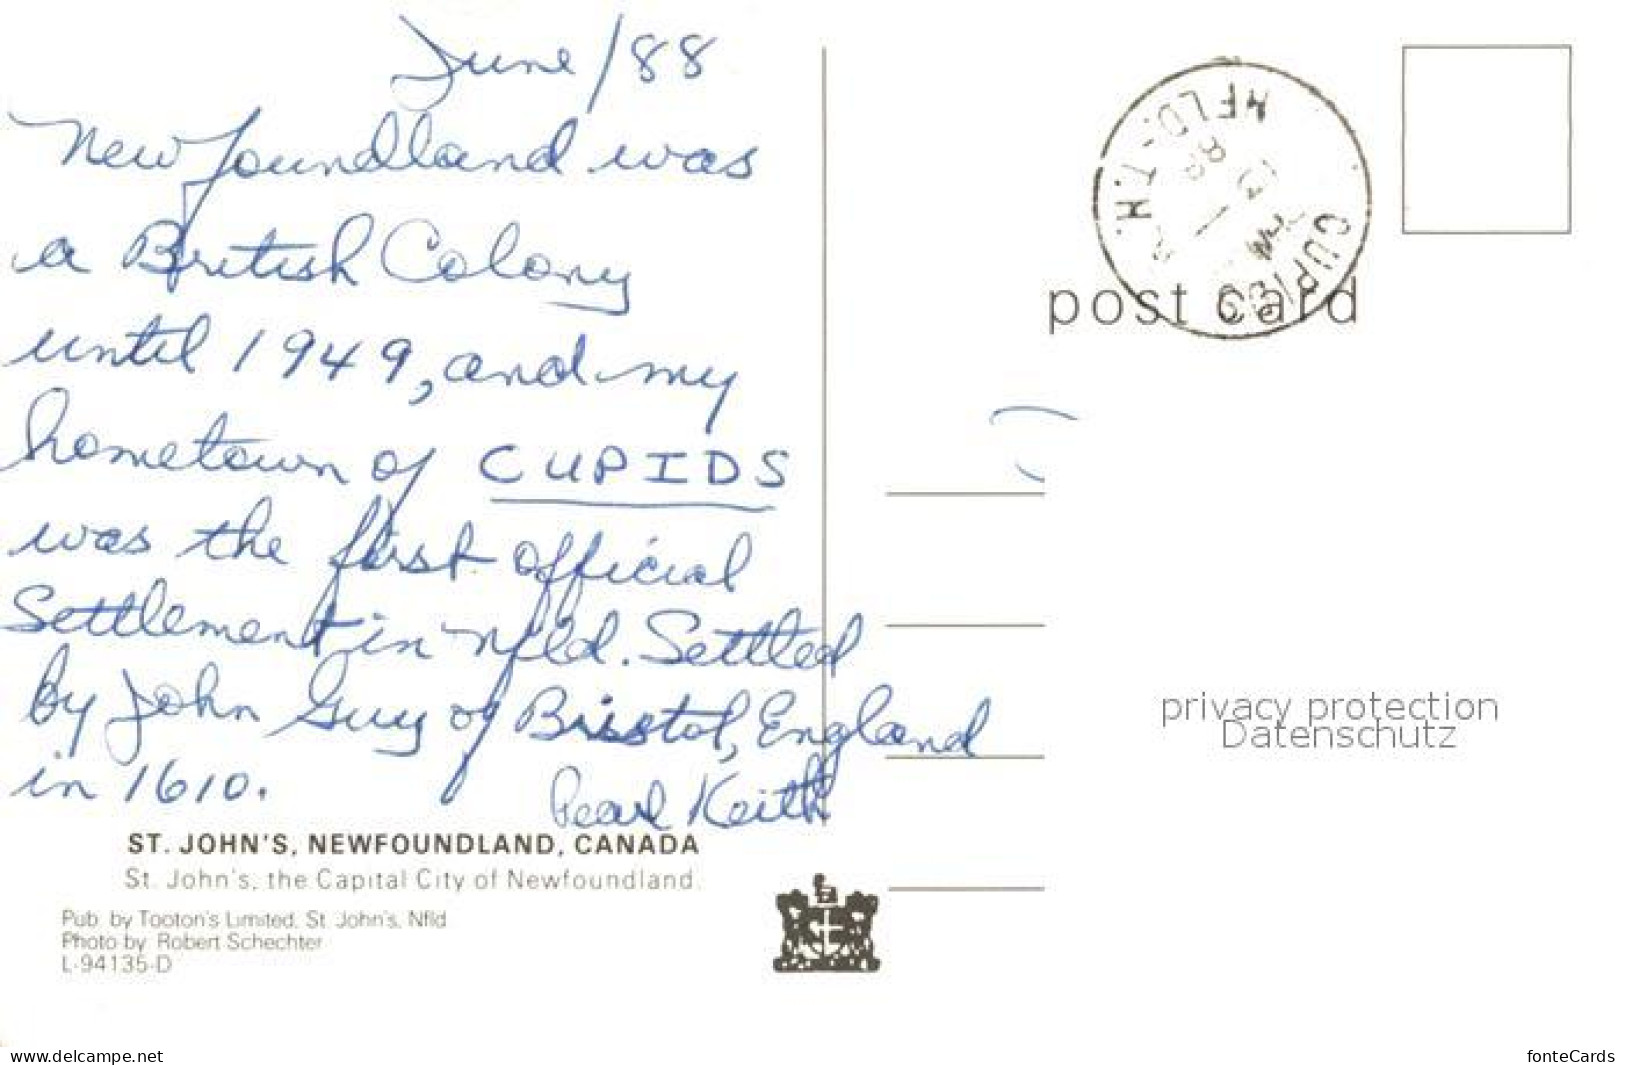 June/88
Newfoundland was
a British Colony
until 1949, and my
hometown of CUPIDS
was the first official
Settlement in Nfld. Settled
by John Guy of Bristol, England
in 1610.
Pearl Keith
ST. JOHN'S, NEWFOUNDLAND, CANADA
St. John's, the Capital City of Newfoundland.
Pub. by Tooton's Limited, St. John's, Nfld.
Photo by Robert Schechter
L-94135-D
CUPIDS
NFLD.-T.H.
88
post card
privacy protection
Datenschutz
www.delcampe.net
fonteCards